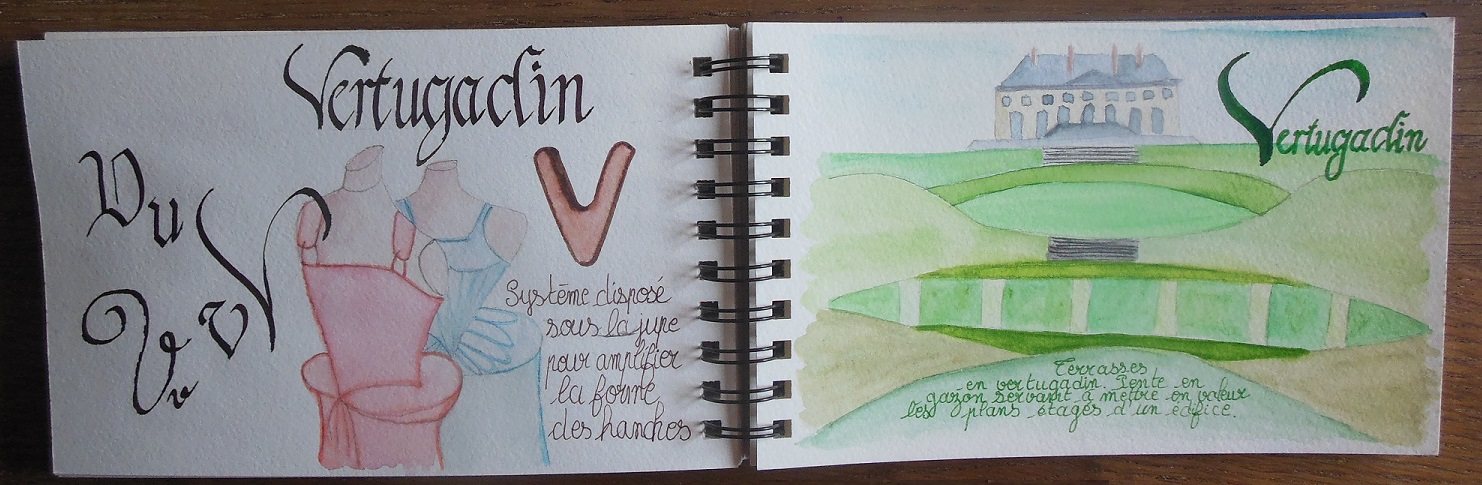 Vertugadin
Du
V
V
V
Vv
v
Système disposé
sous la jupe
pour amplifier
la forme
des hanches
Vertugadin
Terrasses
en vertugadin. Pente en
gazon servant à mettre en valeur
les plans étagés d'un édifice.